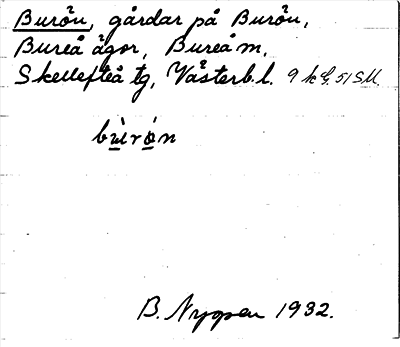 Burön, gårdar på Burön,
Bureå ägor, Bureå m,
Skellefteå tg, Västerb. l. 9 k G. 51 SU.
bù̲rø̲n
B. Nygren 1932.